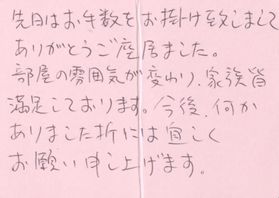 先日はお手数をお掛け致しまして
ありがとうご座居ました。
部屋の雰囲気が変わり、家族皆
満足しております。今後、何か
ありました折には宜しく
お願い申し上げます。